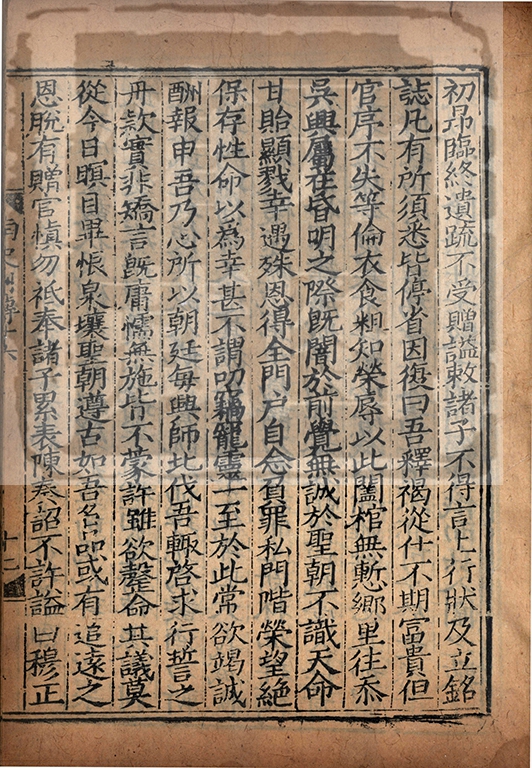 初昻臨終遺疏不受贈謚敕諸子不得言上行狀及立銘
誌凡有所須悉皆停省因復曰吾釋褐從仕不期富貴但
官序不失等倫衣食粗知榮辱以此闔棺無慙鄉里往忝
吳興屬在昏明之際旣闇於前覺無誠於聖朝不識天命
甘貽顯戮幸遇殊恩得全門户自念負罪私門階榮望絕
保存性命以為幸甚不謂叨竊寵靈一至於此常欲竭誠
酬報申吾乃心所以朝廷每興師北伐吾輙啓求行誓之
丹款實非矯言旣庸懦無施皆不蒙許雖欲罄命其議莫
從今日瞑目畢恨泉壤聖朝遵古如吾名品或有追遠之
恩脫有贈官慎勿祗奉諸子累表陳奏詔不許謚曰穆正
十二